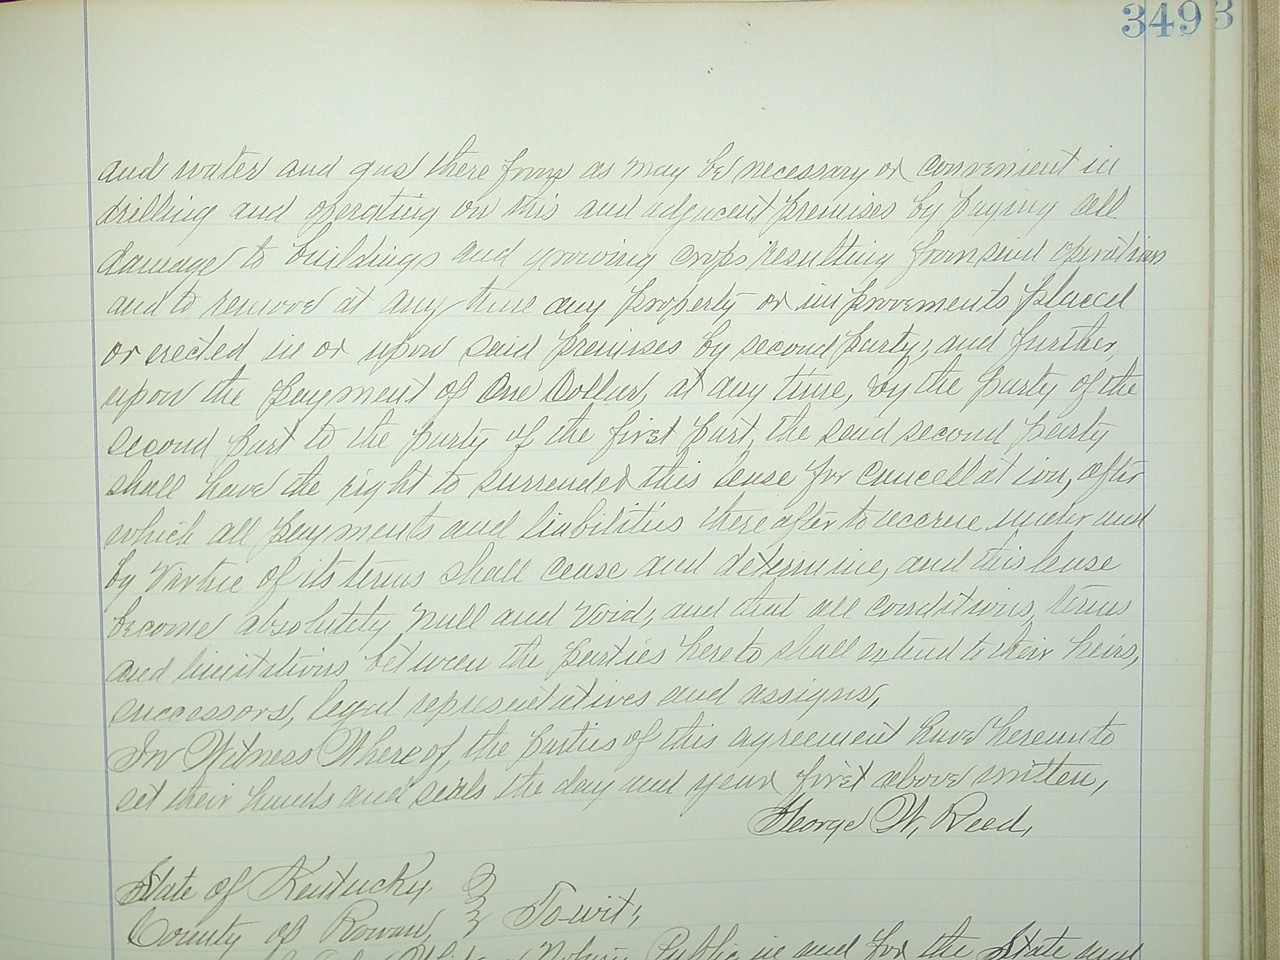 349 3
and water and gas there from as may be necessary or convenient in
drilling and operating on this and adjacent premises by paying all
damage to buildings and growing crops resulting from said operations
and to remove at any time any property or improvements placed
or erected in or upon said premises by second party, and further,
upon the payment of One Dollar, at any time, by the party of the
second part to the party of the first part, the said second party
shall have the right to surrender this lease for cancellation, after
which all payments and liabilities thereafter to accrue under and
by virtue of its terms shall cease and determine, and this lease
become absolutely null and void, and that all conditions, terms
and limitations between the parties hereto shall extend to their heirs,
successors, legal representatives and assigns,
In Witness Whereof, the parties of this agreement have hereunto
set their hands and seals the day and year first above written,
George W. Reed,
State of Kentucky
County of Rowan, Towit,
Notary Public in and for the State and